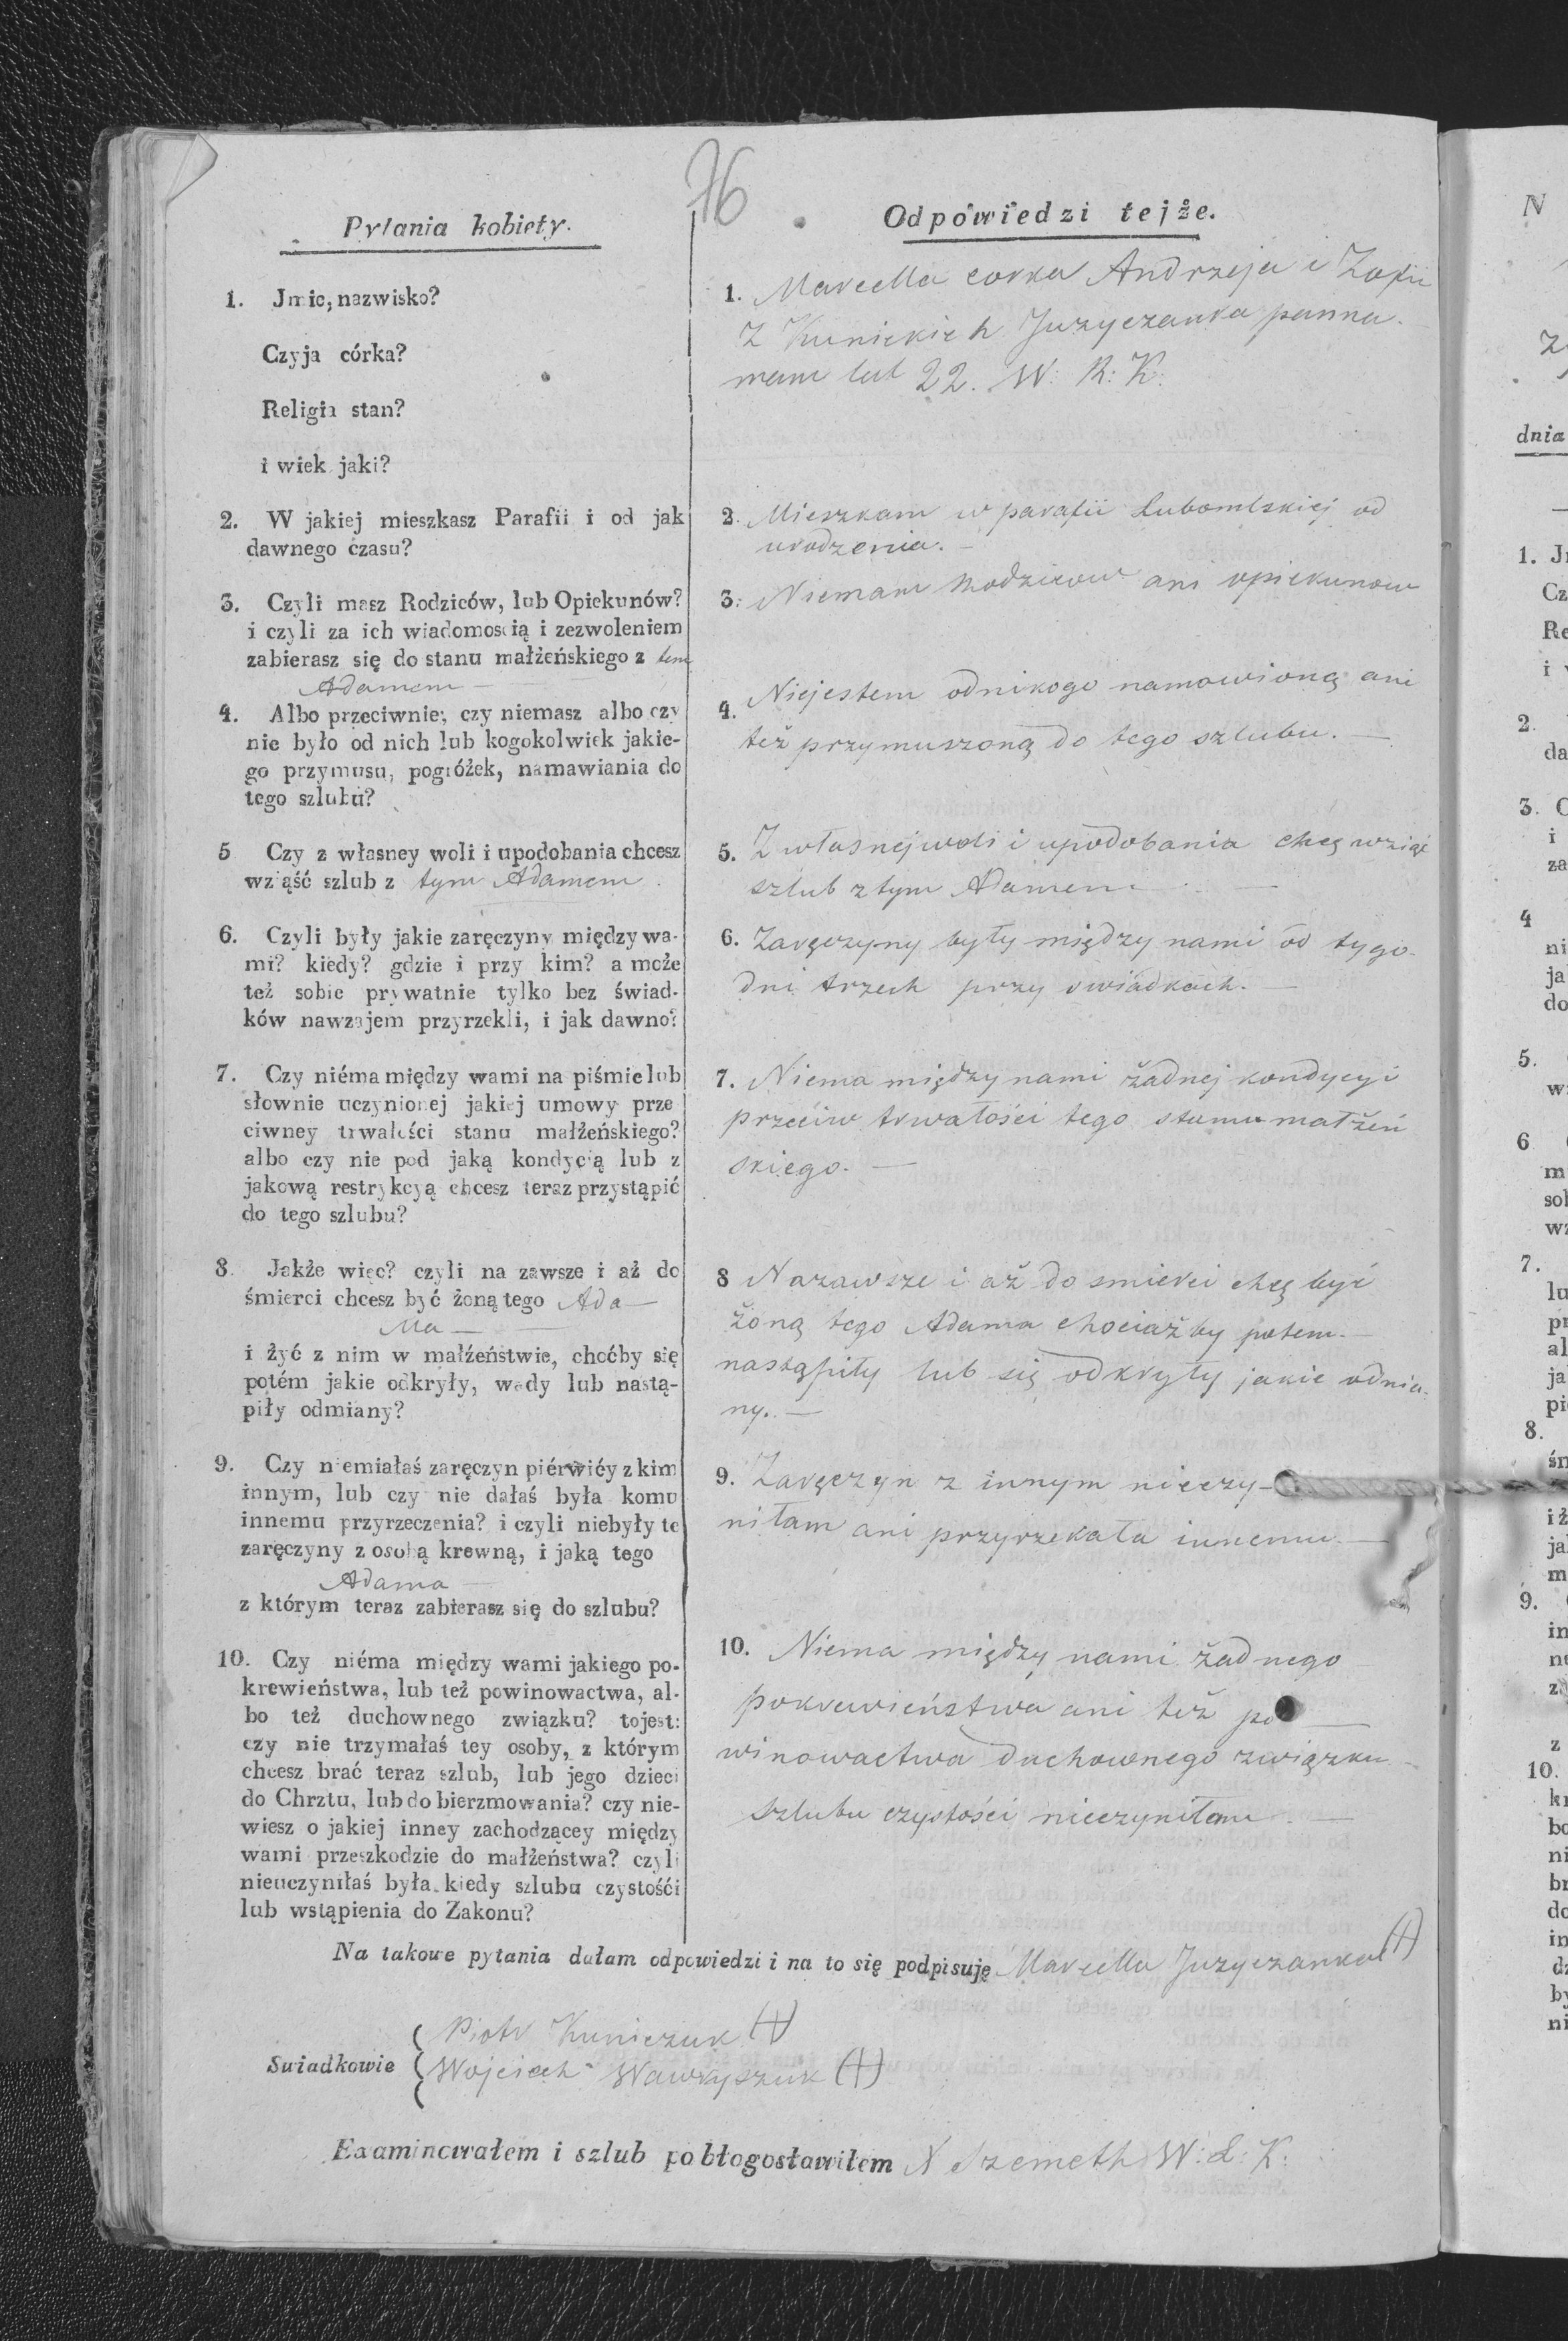 76
Pytania kobiety.
1. Jmie, nazwisko?
Czyja córka?
Religia stan?
i wiek jaki?
2. W jakiej mieszkasz Parafii i od jak
dawnego czasu?
3. Czyli masz Rodziców, lub Opiekunów?
i czyli za ich wiadomością i zezwoleniem
zabierasz się do stanu małżeńskiego z tem
Adamem
4. Albo przeciwnie; czy niemasz albo czy
nie było od nich lub kogokolwiek jakie-
go przymusu, pogróżek, namawiania do
tego szlubu?
5 Czy z własney woli i upodobania chcesz
wziąść szlub z tym Adamem.
6. Czyli były jakie zaręczyny między wa-
mi? kiedy? gdzie i przy kim? a może
też sobie prywatnie tylko bez świad-
ków nawzajem przyrzekli, i jak dawno?
7. Czy niéma między wami na piśmie lub
słownie uczynionej jakiej umowy prze
ciwney trwałości stanu małżeńskiego?
albo czy nie pod jaką kondycią lub z
jakową restrykcyą chcesz teraz przystąpić
do tego szlubu?
8. Jakże więc? czyli na zawsze i aż do
śmierci chcesz być żoną tego Ada—
ma—
i żyć z nim w małżeństwie, choćby się
potém jakie odkryły, wady lub nastą-
piły odmiany?
9. Czy niemiałaś zaręczyn piérwiéy z kim
innym, lub czy nie dałaś była komu
innemu przyrzeczenia? i czyli niebyły te
zaręczyny z osobą krewną, i jaką tego
Adama—
z którym teraz zabierasz się do szlubu?
10. Czy niéma między wami jakiego po-
krewieństwa, lub też powinowactwa, al-
bo też duchownego związku? tojest:
czy nie trzymałaś tey osoby, z którym
chcesz brać teraz szlub, lub jego dzieci
do Chrztu, lub do bierzmowania? czy nie-
wiesz o jakiej inney zachodzącey między
wami przeszkodzie do małżeństwa? czyli
nieuczyniłaś była kiedy szlubu czystośći
lub wstąpienia do Zakonu?
Odpowiedzi tejże.
1. Marcella corka Andrzeja i Zofii
z Kunickich Juzyczanka panna.
mam lat 22. W: R: K:
2. Mieszkam w parafii Lubomlskiej od
urodzenia. —
3. Niemam Rodzicow ani opiekunow
4. Niejestem odnikogo namowioną ani
też przymuszoną do tego szlubu. —
5. Z własnej woli i upodobania chcę wziąć
szlub z tym Adamem —
6. Zaręczyny były między nami od tygo-
dni trzech przy swiadkach. —
7. Niema między nami żadnej kondycyi
przeciw trwałości tego stanu małżeń
skiego. —
8 Nazawsze i aż do smierci chcę być
żoną tego Adama chociażby potem —
nastąpiły lub się odkryły jakie odmia-
ny. —
9. Zaręczyn z innym nieczy-
niłam ani przyrzekała innemu —
10. Niema między nami żadnego
pokrewieństwa ani też po —
winowactwa duchownego związku
szlubu czystości nieczyniłam —
Na takowe pytania dałam odpowiedzi i na to się podpisuję Marcella Juzyczanka (+)
Swiadkowie
Piotr Kuniczuk (+)
Wojciech Wawryszuk (+)
Examinowałem i szlub pobłogosławiłem X Szemeth W: L: K:
N
dnia
1. J
Cz
Re
i
2.
da
3. C
i
za
4
ni
ja
do
5.
w
6
m
sol
wz
7.
lu
pr
al
ja
pi
8.
śn
i ż
ja
m
9.
in
ne
z
z
10.
kr
bo
ni
br
do
in
dz
by
ni